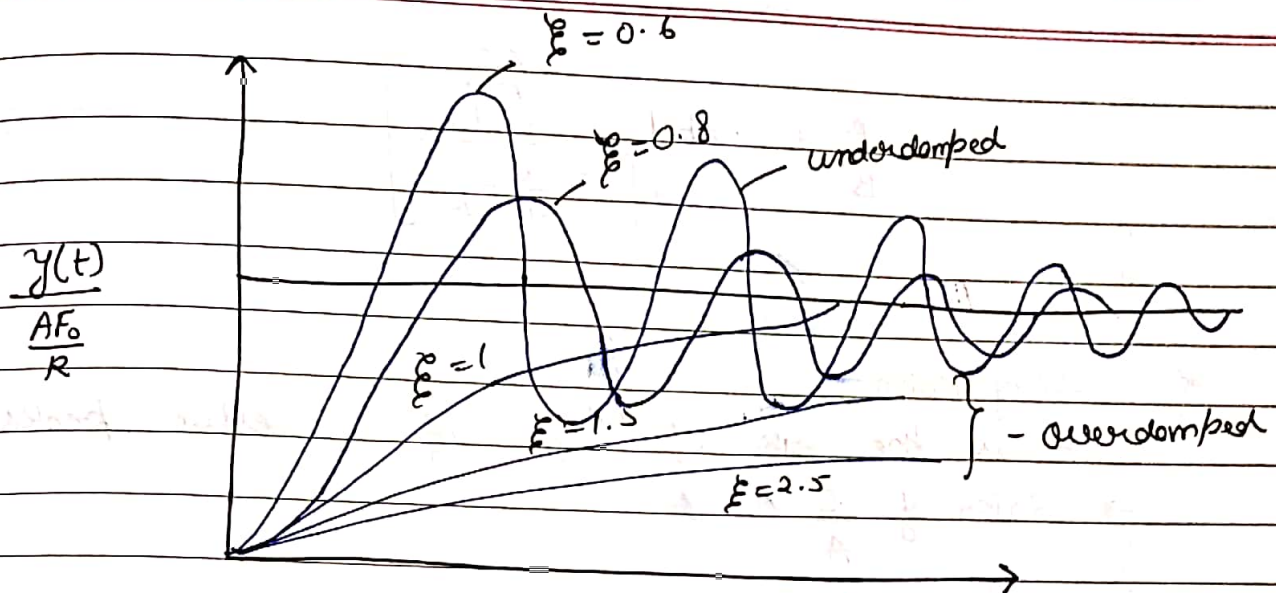 ξ = 0.6
ξ = 0.8
underdamped
y(t)
AF₀
R
ξ = 1
ξ = 1.5
- overdamped
ξ = 2.5